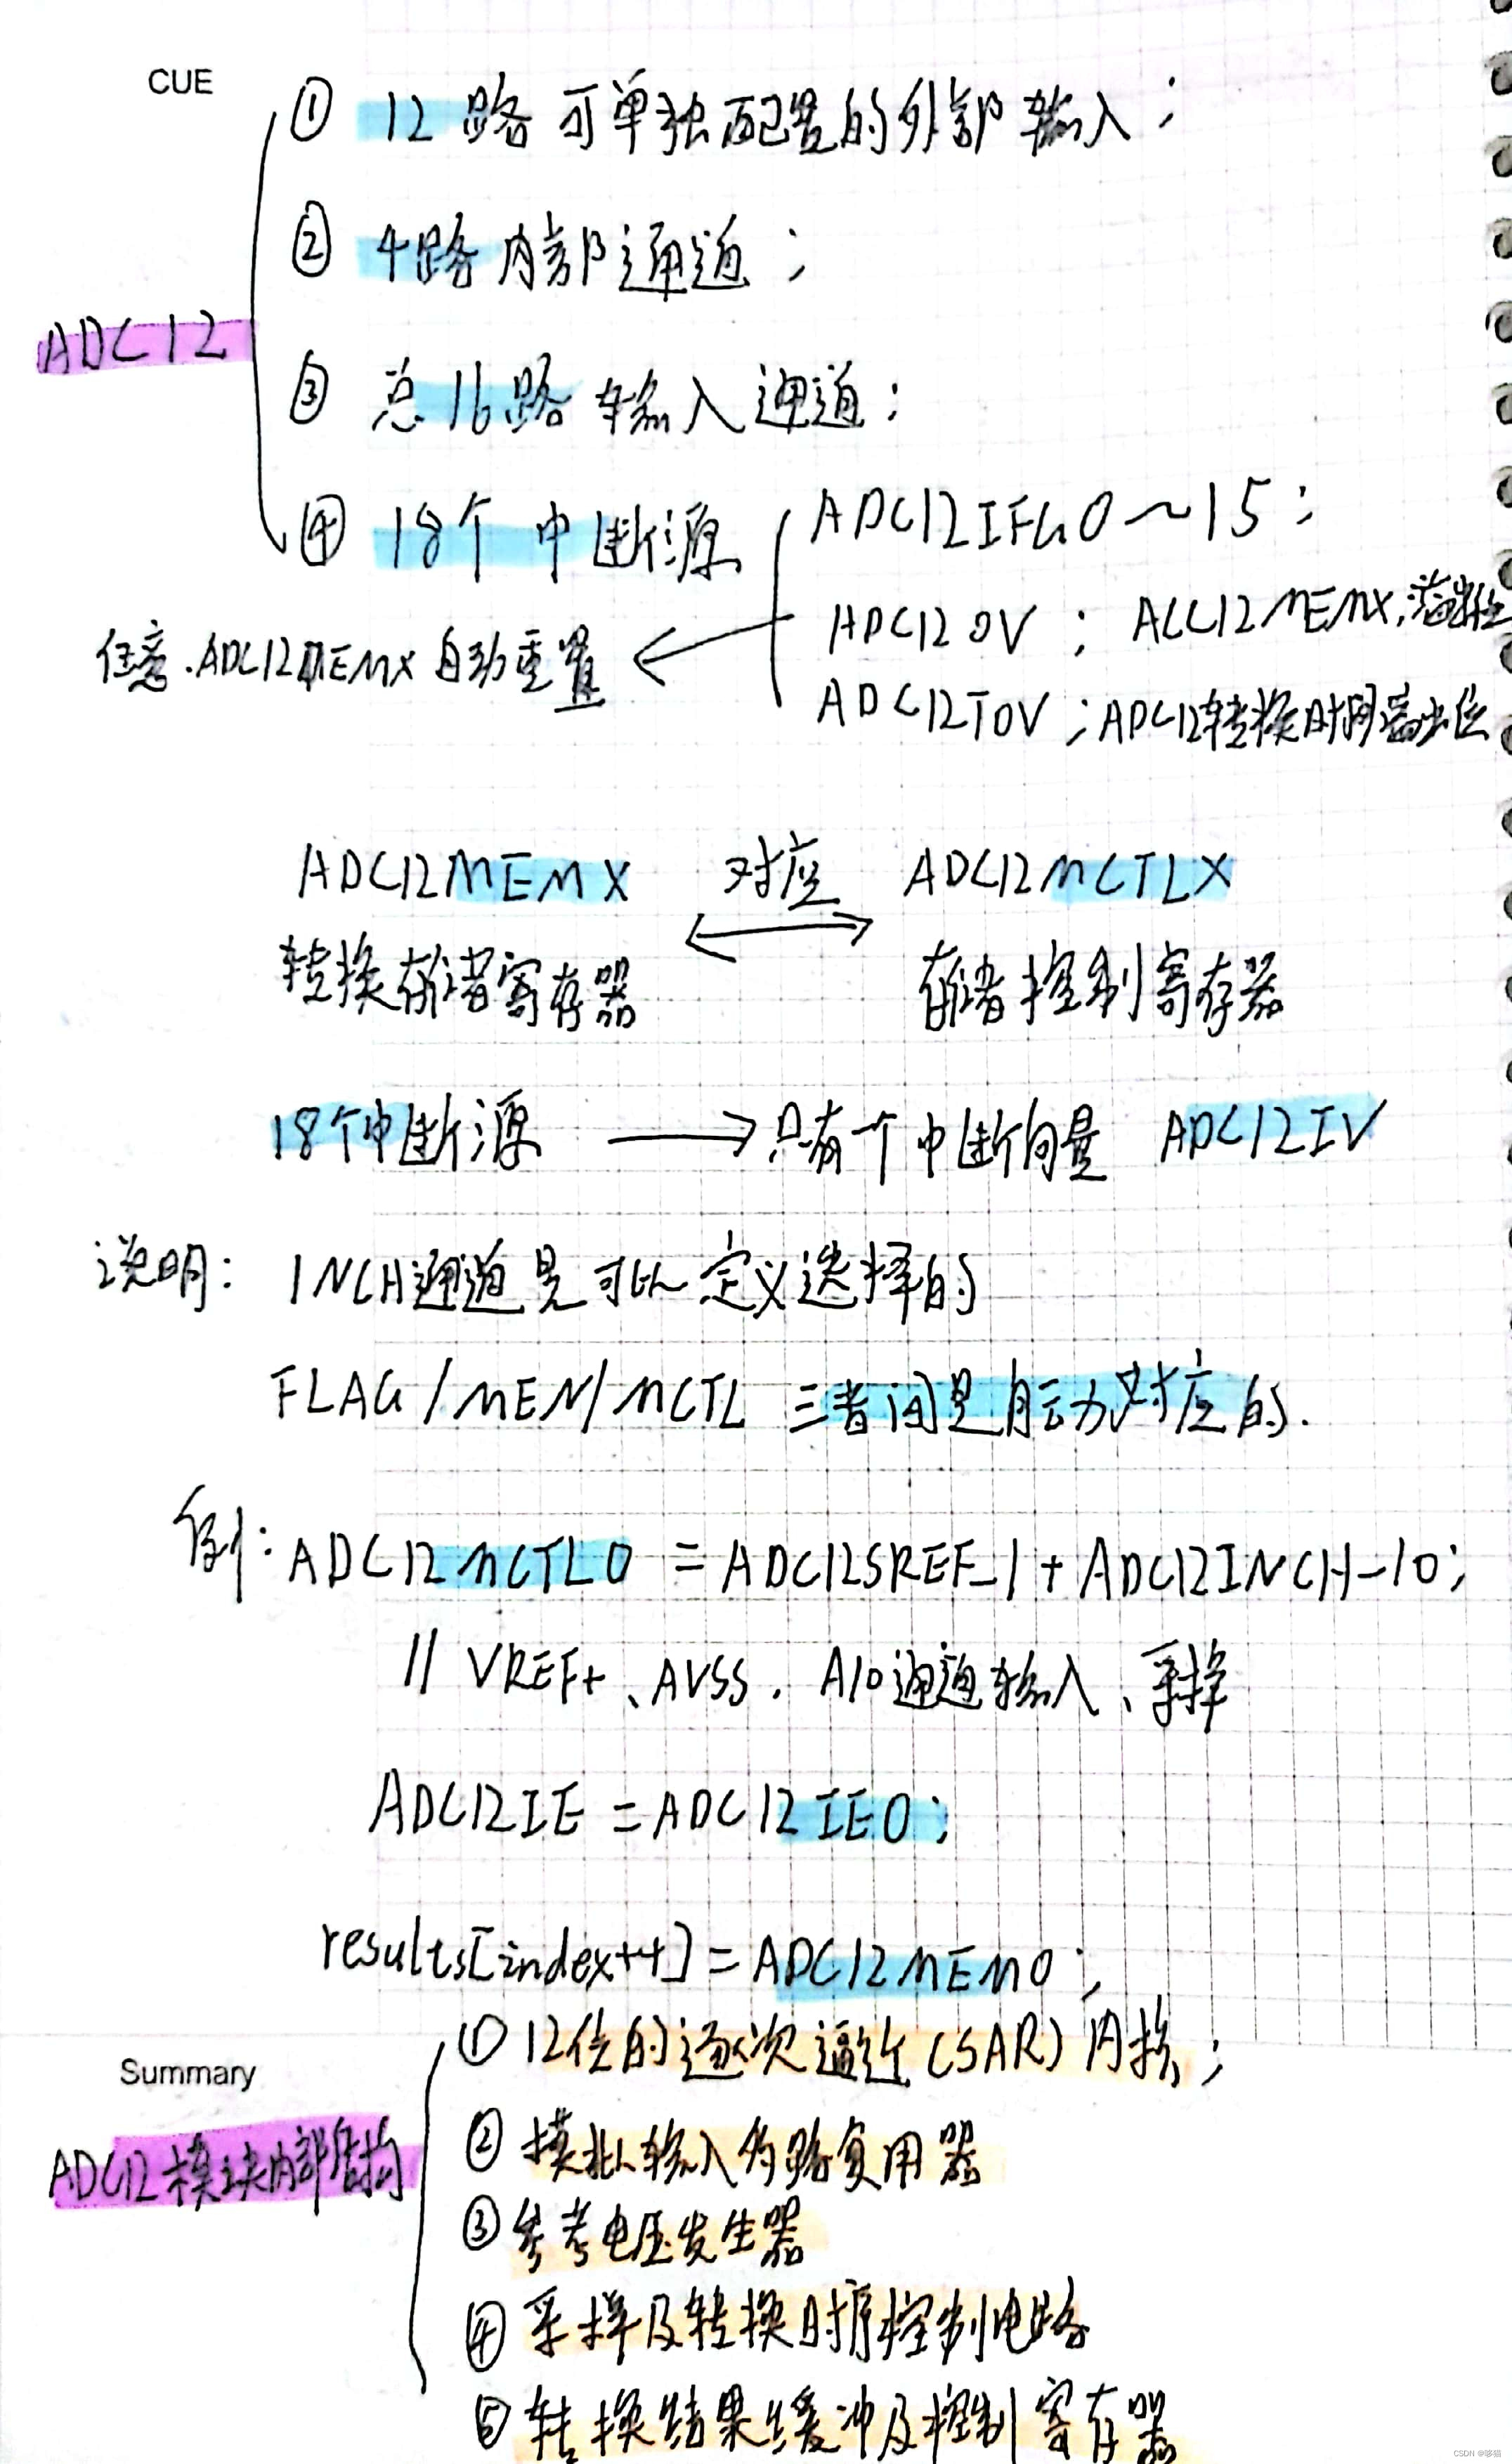 CUE
① 12路可单独配置的外部输入;
② 4路内部通道;
ADC12
③ 总16路输入通道;
④ 18个中断源
ADC12IFG0~15;
ADC12OV; ACC12MEMX,溢出位
任意.ADC12MEMX自动重置
ADC12TOV;ADC12转换时间溢出位
ADC12MEMX 对应 ADC12MCTLX
转换存储寄存器 存储控制寄存器
18个中断源 → 只有一个中断向量 ADC12IV
说明: INCH通道是可以定义选择的
FLAG/MEM/MCTL 三者间是自动对应的.
例: ADC12MCTL0 = ADC12SREF_1 + ADC12INCH-10;
// VREF+、AVSS. A10通道输入、采样
ADC12IE = ADC12IE0;
results[index++] = ADC12MEM0;
Summary
① 12位的逐次逼近(SAR)内核;
② 模拟输入多路复用器
ADC12模块内部结构
③ 参考电压发生器
④ 采样及转换时序控制电路
⑤ 转换结果缓冲及控制寄存器
CSDN @哆猫